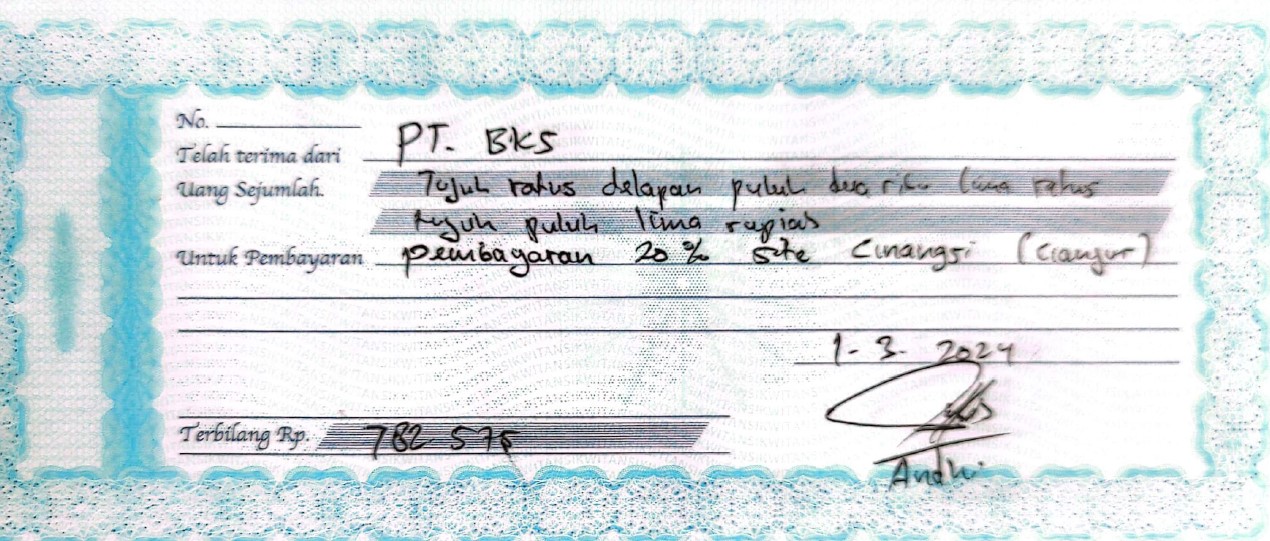 No.
Telah terima dari PT. BKS
Uang Sejumlah. Tujuh ratus delapan puluh dua ribu lima ratus
tujuh puluh lima rupiah
Untuk Pembayaran pembayaran 20% site Cinangsi (Cianjur)
1-3-2024
Terbilang Rp. 782 575
Andhi